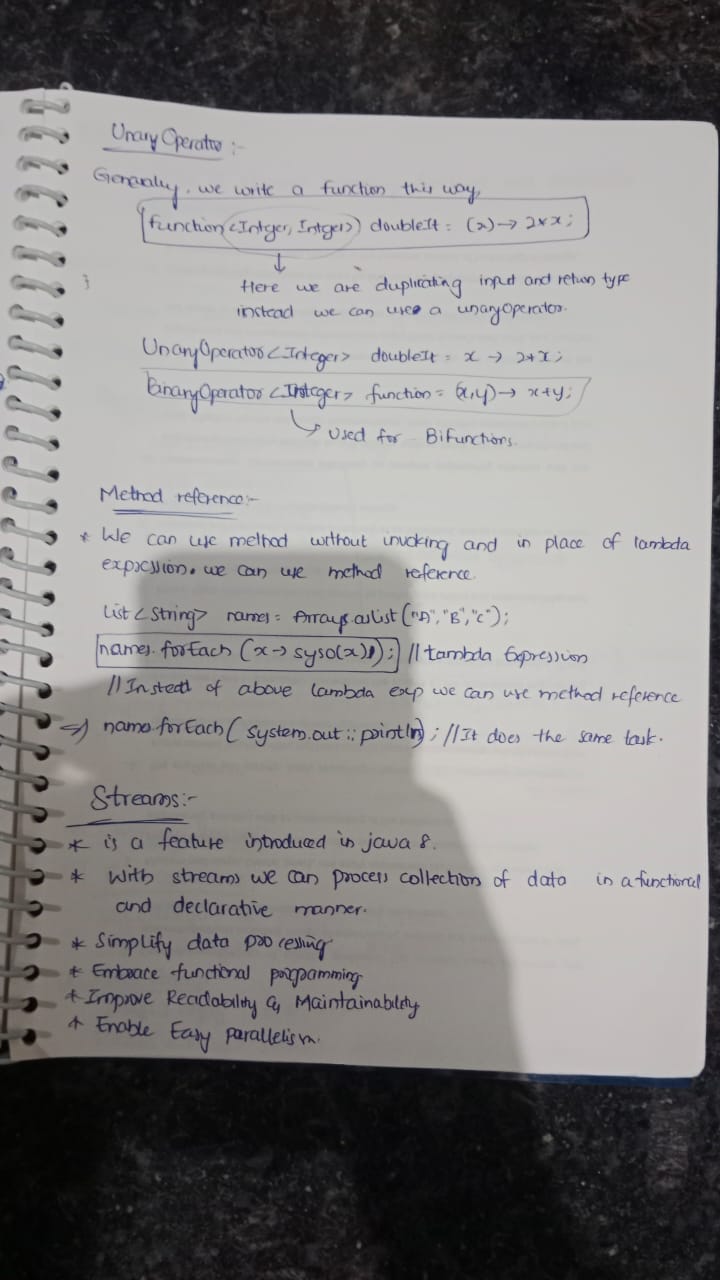 Unary Operator :-
Generally, we write a function this way,
function <Intger, Intger>) doubleIt = (x) → 2*x;
↓
Here we are duplicating input and return type
instead we can use a unaryOperator.
UnaryOperator <Integer> doubleIt = x → 2*x;
BinaryOperator <Integer> function = (x,y) → x+y;
↳ used for BiFunctions.
Method reference:-
* We can use method without invoking and in place of lambda
expression. we can use method reference.
List <String> names = Arrays.asList ("A", "B", "C");
names.forEach (x → syso(x)); // Lambda Expression
// Insted of above lambda exp we can use method reference
⇒ name.forEach ( system.out :: println) ; // It does the same task.
Streams:-
* is a feature introduced in java 8.
* With streams we can process collection of data in a functional
and declarative manner.
* Simplify data processing
* Embrace functional programming
* Improve Readability & Maintainability
* Enable Easy parallelism.